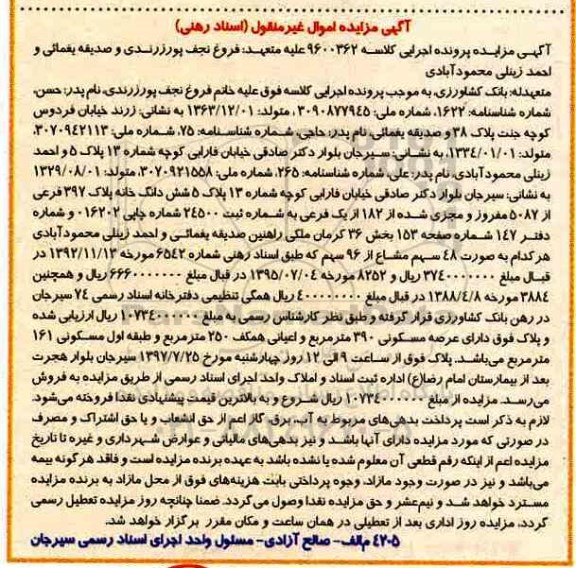 آگهی مزایده اموال غیرمنقول (اسناد رهنی)
آگهی مزایده پرونده اجرایی کلاسه ۹۶۰۰۳۶۲ علیه متعهد: فروغ نجف پورزرندی و صدیقه یغمائی و
احمد زینلی محمودآبادی
متعهدله: بانک کشاورزی، به موجب پرونده اجرایی کلاسه فوق علیه خانم فروغ نجف پورزرندی، نام پدر: حسن،
شماره شناسنامه: ۱۶۲۲، شماره ملی: ۳۰۹۰۸۷۷۹۴۵، متولد: ۱۳۶۳/۱۲/۰۱ به نشانی: زرند خیابان فردوس
کوچه جنت پلاک ۳۸ و صدیقه یغمائی، نام پدر: حاجی، شماره شناسنامه: ۷۵، شماره ملی: ۳۰۷۰۹۴۲۱۱۳،
متولد: ۱۳۳۴/۰۱/۰۱، به نشانی: سیرجان بلوار دکتر صادقی خیابان فارابی کوچه شماره ۱۳ پلاک ۵ و احمد
زینلی محمودآبادی، نام پدر: علی، شماره شناسنامه: ۲۶۵، شماره ملی: ۳۰۷۰۹۲۱۵۵۸، متولد: ۱۳۲۹/۰۸/۰۱
به نشانی: سیرجان بلوار دکتر صادقی خیابان فارابی کوچه شماره ۱۳ پلاک ۵ شش دانگ خانه پلاک ۳۹۷ فرعی
از ۵۰۸۷ مفروز و مجزی شده از ۱۸۲ از یک فرعی به شماره ثبت ۲۴۵۰۰ شماره چاپی ۰۱۶۲۰۲ و شماره
دفتر ۱۴۷ شماره صفحه ۱۵۳ بخش ۳۶ کرمان ملکی راهنین صدیقه یغمائی و احمد زینلی محمودآبادی
هر کدام به صورت ۴۸ سهم مشاع از ۹۶ سهم که طبق اسناد رهنی شماره ۶۵۴۲ مورخه ۱۳۹۲/۱۱/۱۳ در
قبال مبلغ ۳۷۴۰۰۰۰۰۰۰ ریال و ۸۲۵۲ مورخه ۱۳۹۵/۰۷/۰۴ در قبال مبلغ ۶۶۶۰۰۰۰۰۰۰ ریال و همچنین
۳۸۸۴ مورخه ۱۳۸۸/۴/۸ در قبال مبلغ ۴۰۰۰۰۰۰۰۰ ریال همگی تنظیمی دفترخانه اسناد رسمی ۷۴ سیرجان
در رهن بانک کشاورزی قرار گرفته و طبق نظر کارشناس رسمی به مبلغ ۱۰۷۳۴۰۰۰۰۰۰ ریال ارزیابی شده
و پلاک فوق دارای عرصه مسکونی ۳۹۰ مترمربع و اعیانی همکف ۲۵۰ مترمربع و طبقه اول مسکونی ۱۶۱
مترمربع می‌باشد. پلاک فوق از ساعت ۹ الی ۱۲ روز چهارشنبه مورخ ۱۳۹۷/۷/۲۵ سیرجان بلوار هجرت
بعد از بیمارستان امام رضا(ع) اداره ثبت اسناد و املاک واحد اجرای اسناد رسمی از طریق مزایده به فروش
می‌رسد. مزایده از مبلغ ۱۰۷۳۴۰۰۰۰۰۰ ریال شروع و به بالاترین قیمت پیشنهادی نقدا فروخته می‌شود.
لازم به ذکر است پرداخت بدهی‌های مربوط به آب، برق، گاز اعم از حق انشعاب و یا حق اشتراک و مصرف
در صورتی که مورد مزایده دارای آنها باشد و نیز بدهی‌های مالیاتی و عوارض شهرداری و غیره تا تاریخ
مزایده اعم از اینکه رقم قطعی آن معلوم شده یا نشده باشد به عهده برنده مزایده است و فاقد هر گونه بیمه
می‌باشد و نیز در صورت وجود مازاد، وجوه پرداختی بابت هزینه‌های فوق از محل مازاد به برنده مزایده
مسترد خواهد شد و نیم‌عشر و حق مزایده نقدا وصول می‌گردد. ضمنا چنانچه روز مزایده تعطیل رسمی
گردد، مزایده روز اداری بعد از تعطیلی در همان ساعت و مکان مقرر برگزار خواهد شد.
۴۲۰۵ م‌الف- صالح آزادی- مسئول واحد اجرای اسناد رسمی سیرجان